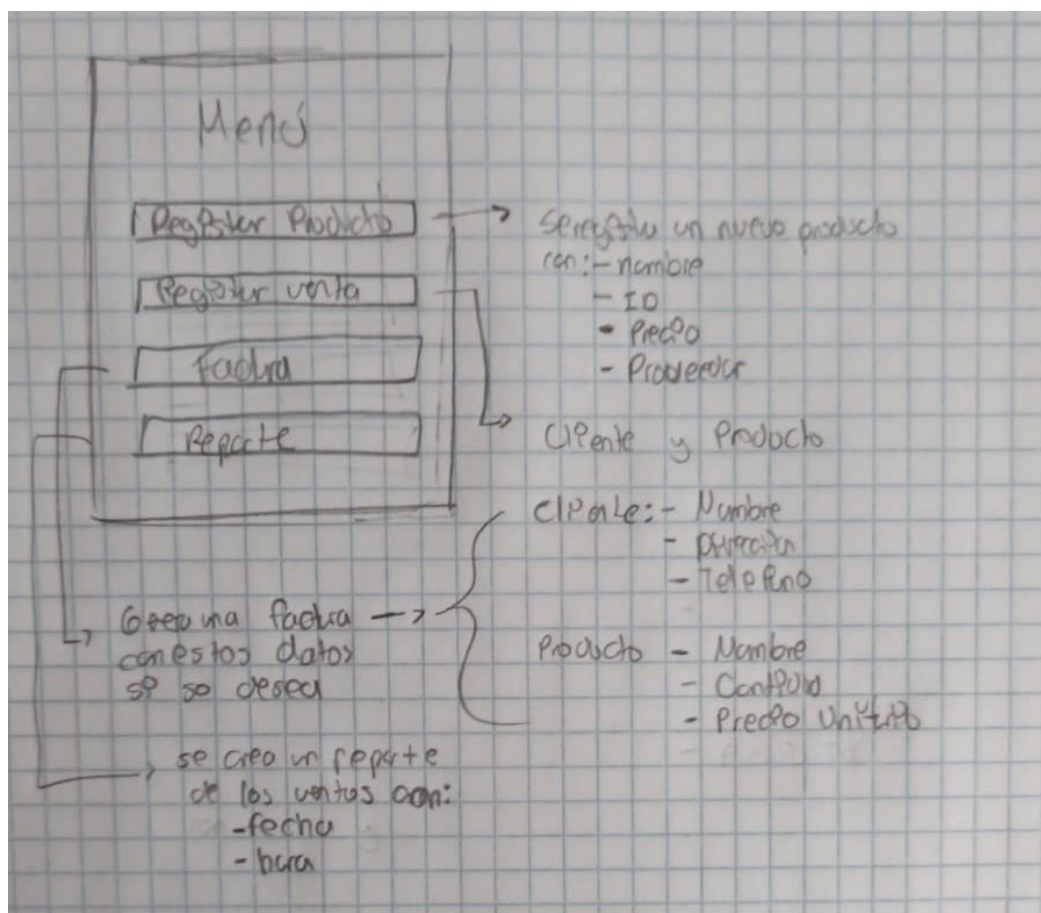 Menú
Registrar Producto
Registrar venta
Factura
Reporte
Se registra un nuevo producto
con: - nombre
- ID
- Precio
- Proveedor
Cliente y Producto
Cliente: - Nombre
- Dirección
- Telefono
Producto - Nombre
- Cantidad
- Precio Unitario
Crea una factura
con estos datos
si se desea
se crea un reporte
de las ventas con:
- fecha
- hora